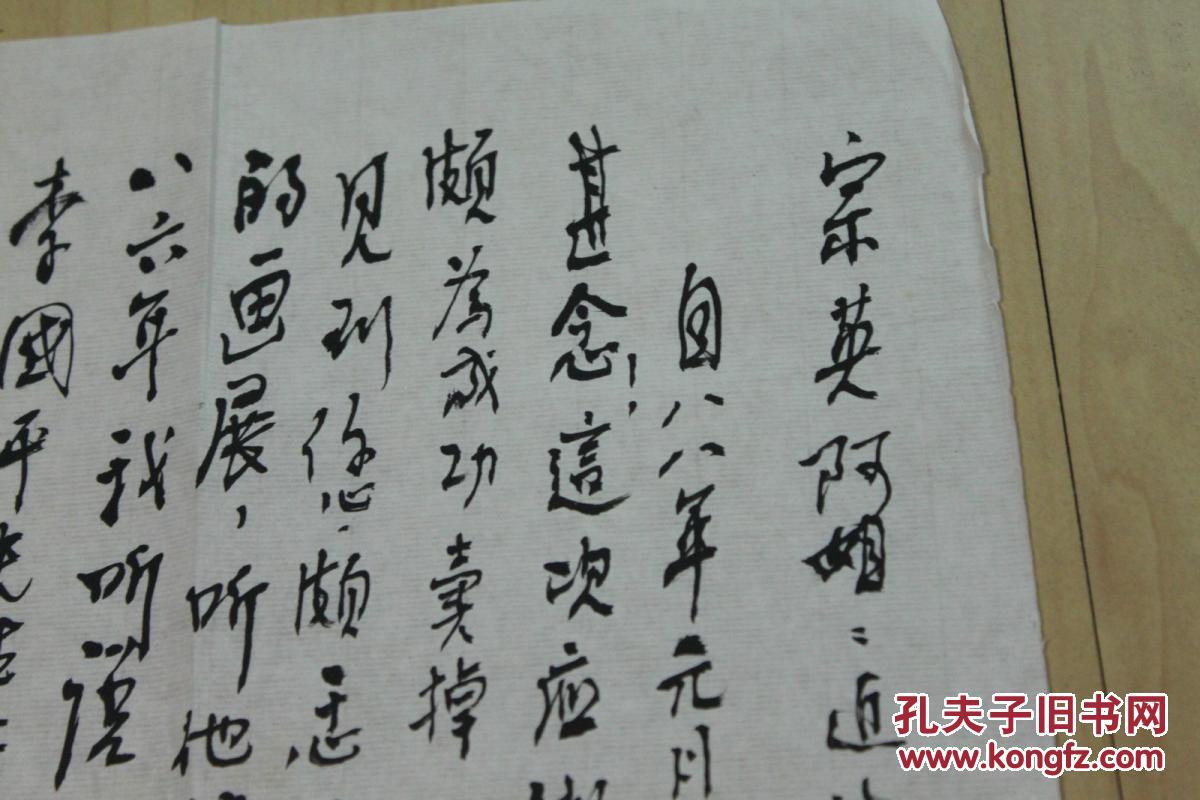 宗英阿姐：近
自八八年元月
甚念，這次应
颇為成功賣掉
見到您，颇
的画展，听他
八六年我听说
李國平先
孔夫子旧书网
www.kongfz.com